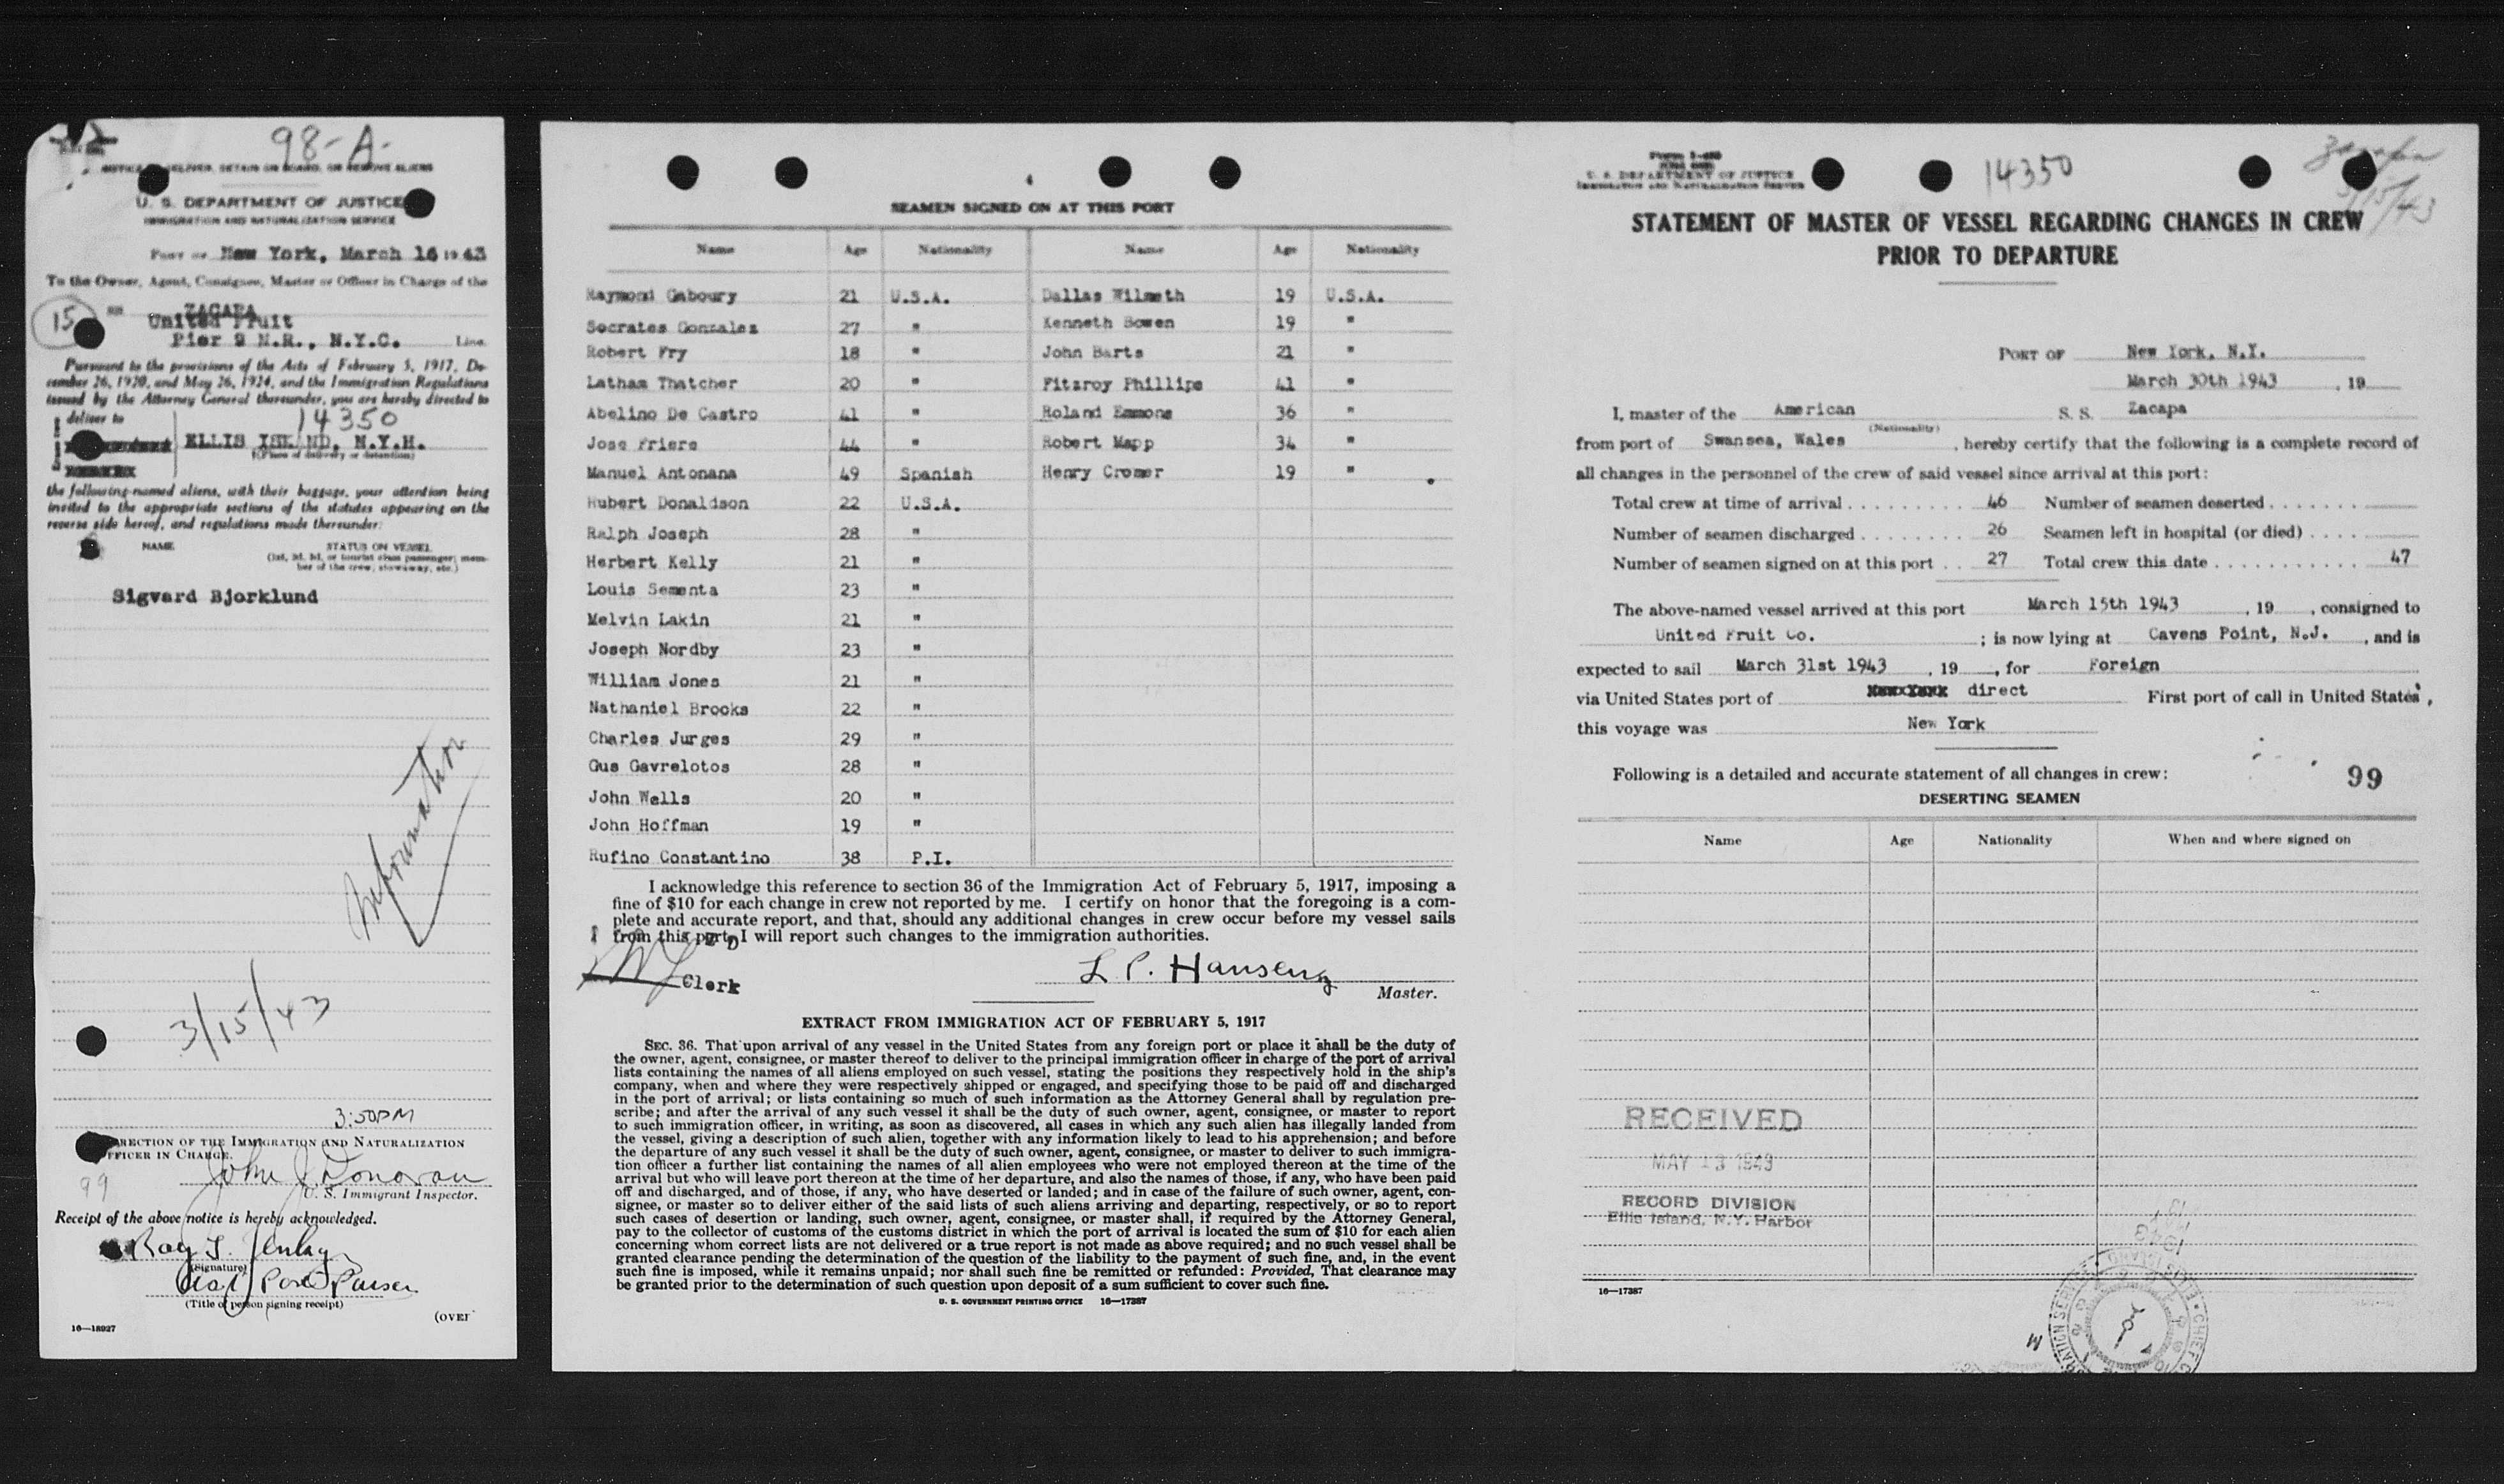 98-A-
U. S. DEPARTMENT OF JUSTICE
IMMIGRATION AND NATURALIZATION SERVICE
PORT OF New York, March 16 1943
To the Owner, Agent, Consignee, Master or Officer in Charge of the
15
SS ZACAPA
United Fruit
Pier 9 N.R., N.Y.C. Line.
Pursuant to the provisions of the Acts of February 5, 1917, De-
cember 26, 1920, and May 26, 1924, and the Immigration Regulations
issued by the Attorney General thereunder, you are hereby directed to
deliver to 14350
ELLIS ISLAND, N.Y.H.
(Place of delivery or detention)
the following-named aliens, with their baggage, your attention being
invited to the appropriate sections of the statutes appearing on the
reverse side hereof, and regulations made thereunder:
NAME STATUS ON VESSEL
(1st, 2d, 3d, or tourist class passenger; mem-
ber of the crew; stowaway, etc.)
Sigvard Bjorklund
Information
3/15/43
3:50PM
DIRECTION OF THE IMMIGRATION AND NATURALIZATION
OFFICER IN CHARGE.
John J. Donovan
99
U. S. Immigrant Inspector.
Receipt of the above notice is hereby acknowledged.
(Signature)
(Title of person signing receipt)
(OVER
16—18927
4
SEAMEN SIGNED ON AT THIS PORT
Name Age Nationality Name Age Nationality
Raymond Gaboury 21 U.S.A. Dallas Wilmeth 19 U.S.A.
Socrates Gonzales 27 " Kenneth Bowen 19 "
Robert Fry 18 " John Barts 21 "
Latham Thatcher 20 " Fitzroy Phillips 41 "
Abelino De Castro 41 " Roland Emmons 36 "
Jose Friere 44 " Robert Mapp 34 "
Manuel Antonana 49 Spanish Henry Cromer 19 "
Hubert Donaldson 22 U.S.A.
Ralph Joseph 28 "
Herbert Kelly 21 "
Louis Sementa 23 "
Melvin Lakin 21 "
Joseph Nordby 23 "
William Jones 21 "
Nathaniel Brooks 22 "
Charles Jurges 29 "
Gus Gavrelotos 28 "
John Wells 20 "
John Hoffman 19 "
Rufino Constantino 38 P.I.
I acknowledge this reference to section 36 of the Immigration Act of February 5, 1917, imposing a
fine of $10 for each change in crew not reported by me. I certify on honor that the foregoing is a com-
plete and accurate report, and that, should any additional changes in crew occur before my vessel sails
from this port, I will report such changes to the immigration authorities.
Clerk
L P. Hansen
Master.
EXTRACT FROM IMMIGRATION ACT OF FEBRUARY 5, 1917
SEC. 36. That upon arrival of any vessel in the United States from any foreign port or place it shall be the duty of
the owner, agent, consignee, or master thereof to deliver to the principal immigration officer in charge of the port of arrival
lists containing the names of all aliens employed on such vessel, stating the positions they respectively hold in the ship's
company, when and where they were respectively shipped or engaged, and specifying those to be paid off and discharged
in the port of arrival; or lists containing so much of such information as the Attorney General shall by regulation pre-
scribe; and after the arrival of any such vessel it shall be the duty of such owner, agent, consignee, or master to report
to such immigration officer, in writing, as soon as discovered, all cases in which any such alien has illegally landed from
the vessel, giving a description of such alien, together with any information likely to lead to his apprehension; and before
the departure of any such vessel it shall be the duty of such owner, agent, consignee, or master to deliver to such immigra-
tion officer a further list containing the names of all alien employees who were not employed thereon at the time of the
arrival but who will leave port thereon at the time of her departure, and also the names of those, if any, who have been paid
off and discharged, and of those, if any, who have deserted or landed; and in case of the failure of such owner, agent, con-
signee, or master so to deliver either of the said lists of such aliens arriving and departing, respectively, or so to report
such cases of desertion or landing, such owner, agent, consignee, or master shall, if required by the Attorney General,
pay to the collector of customs of the customs district in which the port of arrival is located the sum of $10 for each alien
concerning whom correct lists are not delivered or a true report is not made as above required; and no such vessel shall be
granted clearance pending the determination of the question of the liability to the payment of such fine, and, in the event
such fine is imposed, while it remains unpaid; nor shall such fine be remitted or refunded: Provided, That clearance may
be granted prior to the determination of such question upon deposit of a sum sufficient to cover such fine.
U. S. GOVERNMENT PRINTING OFFICE 16—17387
U. S. DEPARTMENT OF JUSTICE
IMMIGRATION AND NATURALIZATION SERVICE
14350
Zacapa
3/15/43
STATEMENT OF MASTER OF VESSEL REGARDING CHANGES IN CREW
PRIOR TO DEPARTURE
PORT OF New York, N.Y.
March 30th 1943, 19
I, master of the American S. S. Zacapa
(Nationality)
from port of Swansea, Wales, hereby certify that the following is a complete record of
all changes in the personnel of the crew of said vessel since arrival at this port:
Total crew at time of arrival 46 Number of seamen deserted
Number of seamen discharged 26 Seamen left in hospital (or died)
Number of seamen signed on at this port 27 Total crew this date 47
The above-named vessel arrived at this port March 15th 1943, 19, consigned to
United Fruit Co.; is now lying at Cavens Point, N.J., and is
expected to sail March 31st 1943, 19, for Foreign
via United States port of direct First port of call in United States,
this voyage was New York
Following is a detailed and accurate statement of all changes in crew:
99
DESERTING SEAMEN
Name Age Nationality When and where signed on
RECEIVED
MAY 13 1943
RECORD DIVISION
Ellis Island, N.Y. Harbor
16—17387